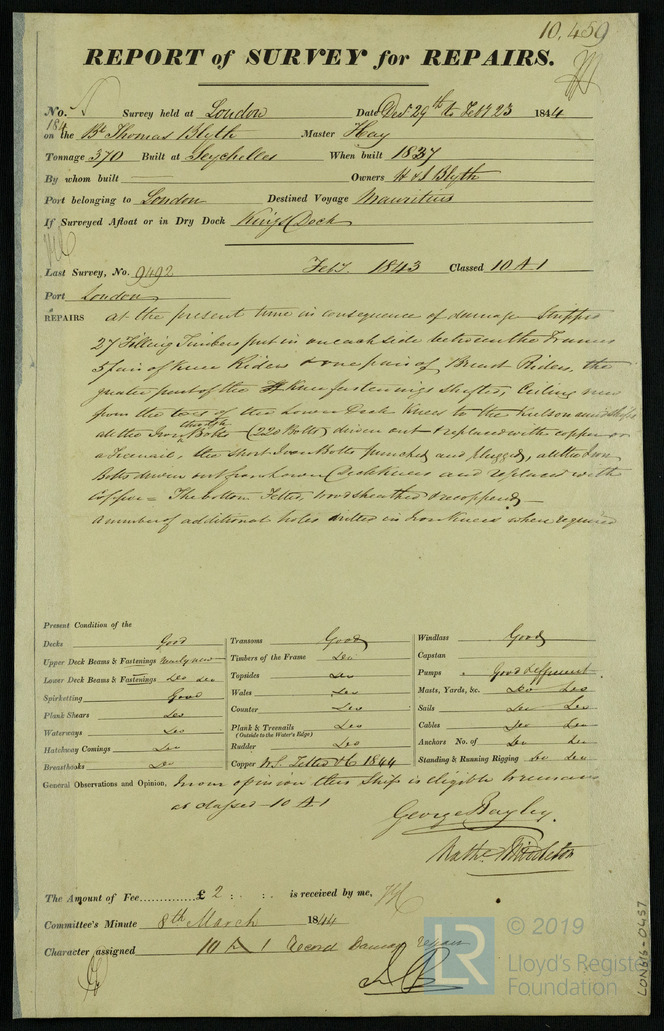 10,459
REPORT of SURVEY for REPAIRS.
No. Survey held at London Date Decr 29th to Feby 23 1844
184
on the Bk Thomas Blyth Master Hay
Tonnage 370 Built at Seychelles When built 1837
By whom built —— Owners H & J Blyth
Port belonging to London Destined Voyage Mauritius
If Surveyed Afloat or in Dry Dock Kings Dock
Last Survey, No. 9492 Feby. 1843 Classed 10 A 1
Port London
REPAIRS at the present time in consequence of damage – Stripped
27 Filling Timbers put in on each side between the Frames
5 pair of Knee Riders & one pair of Breast Riders, the
greater part of the Knee fastenings shifted, Ceiling new
from the toes of the Lower Deck Knees to the Kelson
all the Iron through Bolts – (220 Bolts) driven out & replaced with copper or
a Treenail, the short Iron Bolts punched and plugged, all the Iron
Bolts driven out from Lower Deck Knees and replaced with
Copper = The bottom Felted, wood sheathed & recoppered –
a number of additional bolts drilled in Iron Knees where required
Present Condition of the
Decks Good Transoms Good Windlass Good
Upper Deck Beams & Fastenings nearly new Timbers of the Frame Do Capstan
Lower Deck Beams & Fastenings Do Do Topsides Do Pumps Good & efficient
Spirketting Good Wales Do Masts, Yards, &c. Do Do
Plank Shears Do Counter Do Sails Do Do
Waterways Do Plank & Treenails Do Cables Do Do
(Outside to the Water's Edge)
Hatchway Comings Do Rudder Do Anchors No. of Do Do
Breasthooks Do Copper W.S. Felted & C 1844 Standing & Running Rigging Do Do
General Observations and Opinion, In our opinion this Ship is eligible to remain
as classed – 10 A 1
George Bayley.
Nathl. Middleton
The Amount of Fee............£ 2 : . : . is received by me,
Committee's Minute 8th March 1844
Character assigned 10 A 1 Record Damage repair
LON618-0457
LR
© 2019
Lloyd's Register
Foundation